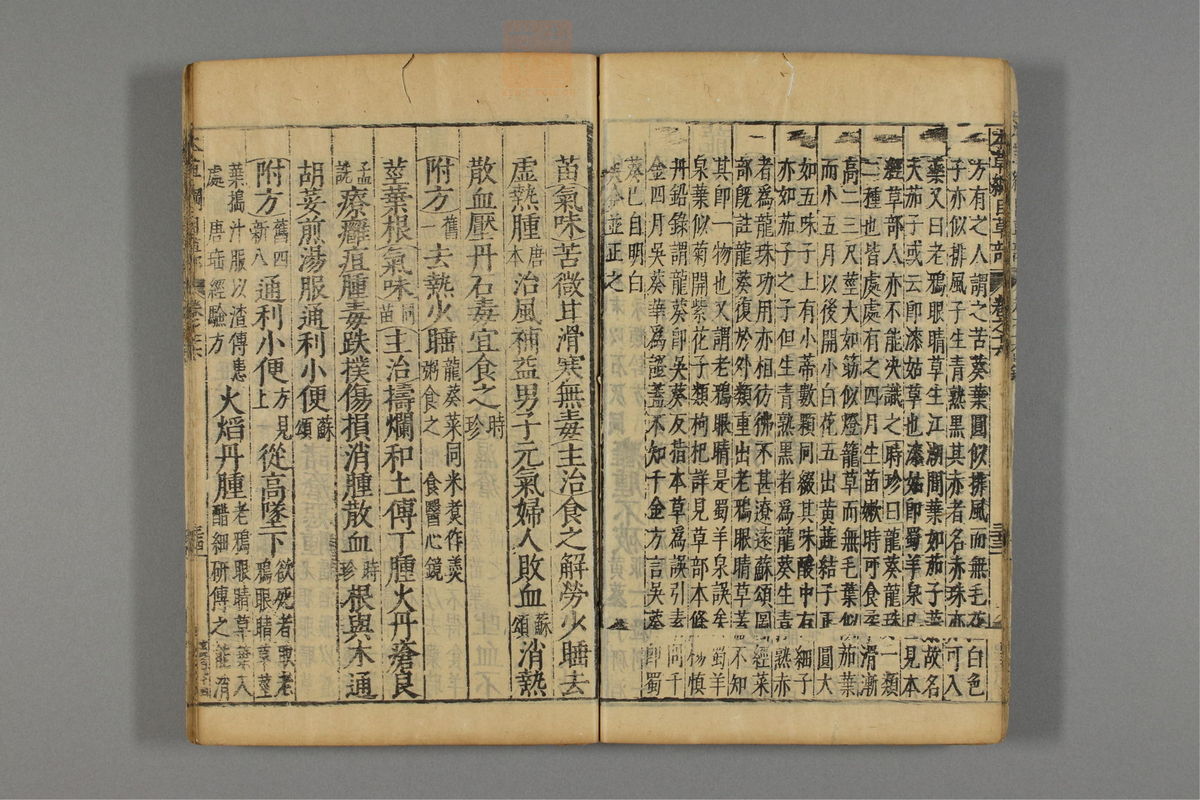 方有之人謂之苦葵葉圓似排風而無毛花白色
子亦似排風子生青熟黑其赤者名赤珠亦可入
藥又曰老鴉眼睛草生江湖間葉如茄子葉故名
天茄子或云即漆姑草也漆姑即蜀羊泉已見本
經草部人亦不能決識之時珍曰龍葵龍珠一類
二種也皆處處有之四月生苗嫩時可食柔滑漸
高二三尺莖大如筯似燈籠草而無毛葉似茄葉
而小五月以後開小白花五出黃蕊結子正圓大
如五味子上有小蒂數顆同綴其味酸中有細子
亦如茄子之子但生青熟黑者爲龍葵生青熟赤
者爲龍珠功用亦相彷彿不甚遼遠蘇頌圖經菜
部旣註龍葵復於外類重出老鴉眼睛草蓋不知
其即一物也又謂老鴉眼睛是蜀羊泉誤矣蜀羊
泉葉似菊開紫花子類枸杞詳見草部本條
丹鉛錄謂龍葵即吳葵反指本草爲誤引
金四月吳葵華爲證蓋不知千金方言吳葵即蜀
葵已自明白
矣今並正之
苗氣味苦微甘滑寒無毒主治食之解勞少睡去
虛熱腫唐本治風補益男子元氣婦人敗血蘇頌消熱
散血壓丹石毒宜食之時珍
附方舊一去熱少睡龍葵菜同米煮作羹粥食之食醫心鏡
莖葉根氣味同苗主治擣爛和土傅丁腫火丹瘡良
孟詵療癰疽腫毒跌撲傷損消腫散血時珍根與木通
胡荽煎湯服通利小便蘇頌
附方舊四新八通利小便方見上從高墜下欲死者取老鴉眼睛草莖
葉搗汁服以渣傅患處唐瑤經驗方火焰丹腫老鴉眼睛草葉入醋細研傅之能消